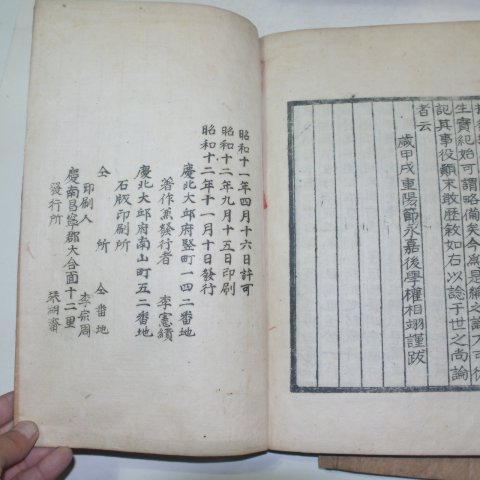 生實紀始可謂略備矣今
記其事役顚末敢歷敘如右以諗于世之尚論
者云
歲甲戌重陽節永嘉後學權相翊謹跋
昭和十一年四月十六日許可
昭和十二年九月十五日印刷
昭和十二年十一月十日發行
慶北大邱府竪町一四二番地
著作兼發行者 李憲績
慶北大邱府南山町五二番地
石版印刷所
仝所 仝番地
印刷人 李宗周
慶南昌寧郡大合面十二里
發行所